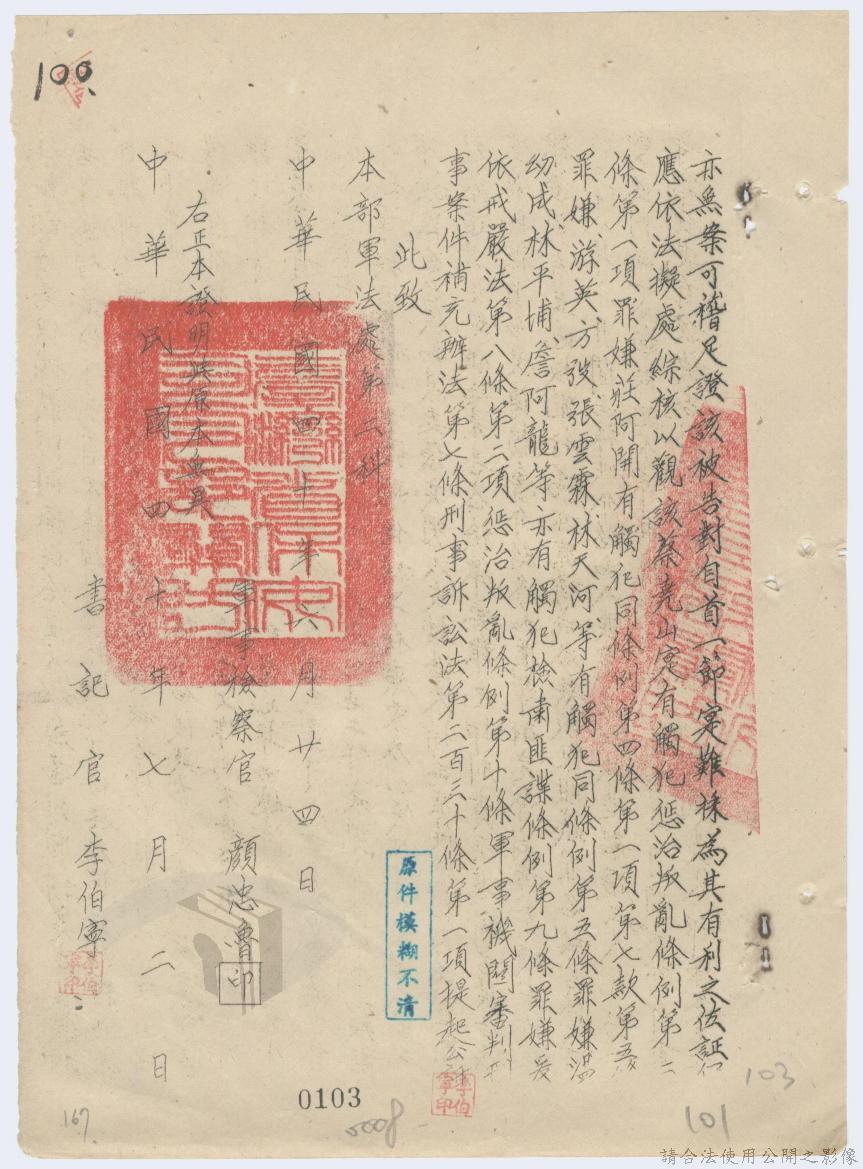 100
亦無案可稽足證該被告對自首一節寔難採為其有利之佐証
應依法擬處綜核以觀該蔡堯山寔有觸犯懲治叛亂條例第二
條第一項罪嫌莊阿開有觸犯同條例第四條第一項第七款第五
罪嫌、游英、方弢、張雲霖、林天河等有觸犯同條例第五條罪嫌
幼成、林平埔、詹阿龍等亦有觸犯檢肅匪諜條例第九條罪嫌爰
依戒嚴法第八條第二項懲治叛亂條例第十條軍事機關審判刑
事案件補充辦法第七條刑事訴訟法第二百三十條第一項提起公訴
此致
本部軍法處第二科
中華民國四十年六月廿四日
軍事檢察官 顏忠魯 印
右正本證明與原本無異
中華民國四十年七月二日
書記官 李伯寧
李伯寧印
原件模糊不清
李伯寧印
0103
0008
101
103
167
請合法使用公開之影像